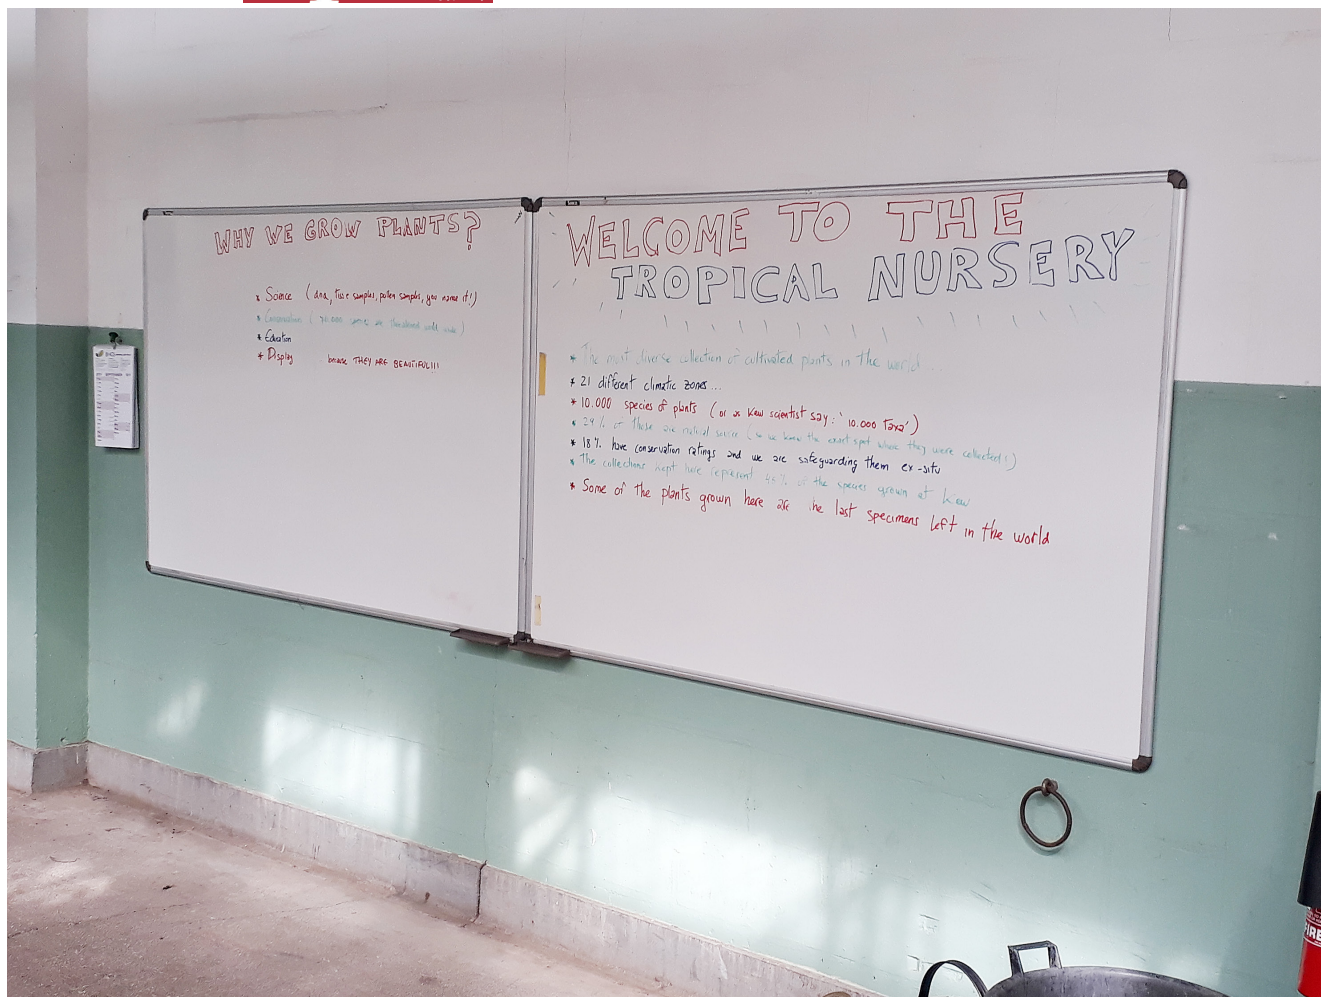 WHY WE GROW PLANTS?
* Science (dna, tissue samples, pollen samples, you name it!)
* Conservation ( are threatened world wide)
* Education
* Display because THEY ARE BEAUTIFUL!!!
WELCOME TO THE
TROPICAL NURSERY
* The most diverse collection of cultivated plants in the world...
* 21 different climatic zones...
* 10.000 species of plants (or as Kew scientist say: '10.000 Taxa')
* 29% of those are natural source (so we know the exact spot where they were collected!)
* 18% have conservation ratings and we are safeguarding them ex-situ
* The collections kept here represent 45% of the species grown at Kew
* Some of the plants grown here are he last specimens left in the world
FIRE